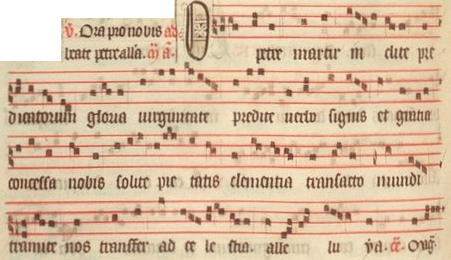 ℣. Ora pro nobis
beate petre alla.
O petre martir in clite pre
dicatorum gloria uirginitate predite uerbo signis et gratia
concessa nobis solite pie tatis clementia transacto mundi
tramite nos transfer ad ce le stia. alle lu ya.